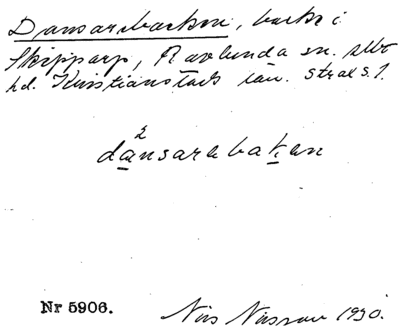 Dansarebacken, backe i
Skipparp, Ravlunda sn. Albo
hd. Kristianstads län. strax s. f.
2
dansarebakan
Nr 5906.
Nils 1930.